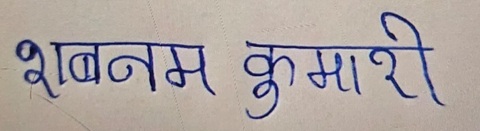 शबनम कुमारी